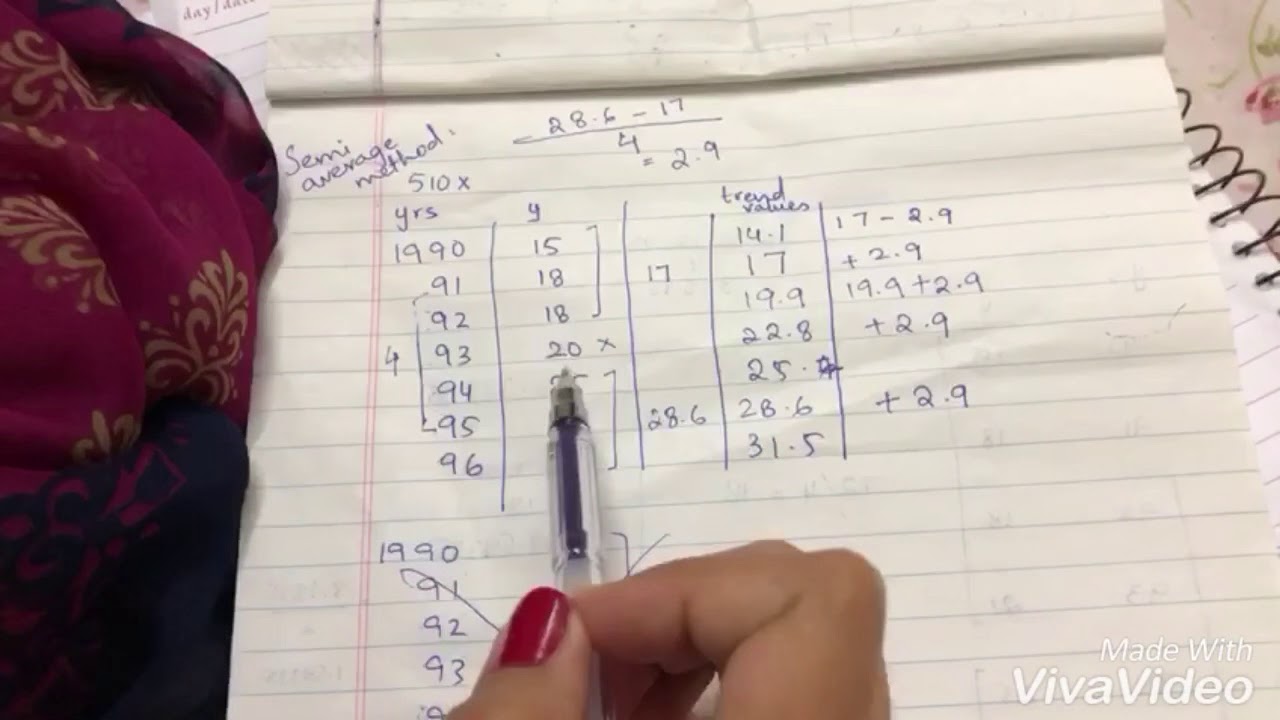 day/date
28.6 - 17
4
= 2.9
Semi average method:
510x
yrs y trend values
1990 15 14.1 17 - 2.9
91 18 17 17 + 2.9
92 18 19.9 19.9 + 2.9
4 93 20 x 22.8 + 2.9
94 25.
95 28.6 28.6 + 2.9
96 31.5
1990
91
92
93
Made With
VivaVideo